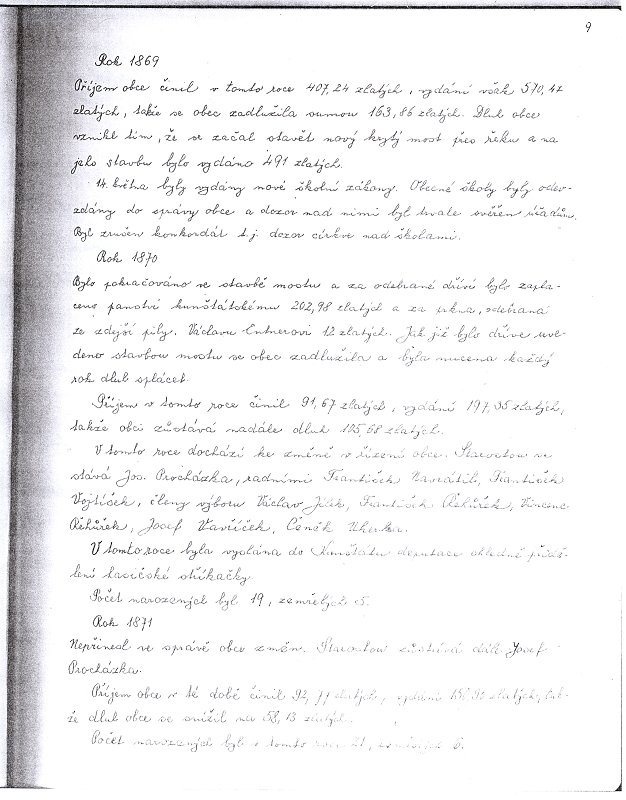 9
Rok 1869
Příjem obce činil v tomto roce 407,24 zlatých, vydání však 570,47
zlatých, takže se obec zadlužila sumou 163,86 zlatých. Dluh obce
vznikl tím, že se začal stavět nový krytý most přes řeku a na
jeho stavbu bylo vydáno 491 zlatých.
14. května byly vydány nové školní zákony. Obecné školy byly ode-
vzdány do správy obce a dozor nad nimi byl svěřen úřadům.
Byl zrušen konkordát t.j. dozor církve nad školami.
Rok 1870
Bylo pokračováno ve stavbě mostu a za odebrané dříví bylo zapla-
ceno panství kunštátskému 202,98 zlatých a za prkna, odebraná
ze zdejší pily, Václavu Entnerovi 12 zlatých. Jak již bylo dříve uve-
deno stavbou mostu se obec zadlužila a byla nucena každý
rok dluh splácet.
Příjem v tomto roce činil 91,67 zlatých, vydání 197,35 zlatých,
takže obci zůstává nadále dluh 105,68 zlatých.
V tomto roce dochází ke změně v řízení obce. Starostou se
stává Jos. Procházka, radními František Navrátil, František
Vojtíšek, členy výboru Václav Jílek, František Řehůřek, Vincenc
Řehůřek, Josef Vavříček, Čeněk Uherka.
V tomto roce byla vyslána do Kunštátu deputace ohledně přidě-
lení hasičské stříkačky.
Počet narozených byl 19, zemřelých 5.
Rok 1871
Nepřinesl ve správě obce změn. Starostou zůstává dále Josef
Procházka.
Příjem obce v té době činil 92,77 zlatých, vydání zlatých, tak-
že dluh obce se snížil na 58,13 zlatých.
Počet narozených byl v tomto roce 21, zemřelých 6.